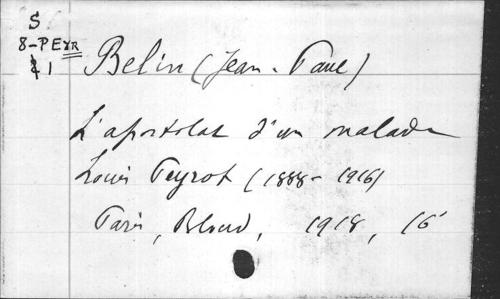 S.
8-PEYR
1
Belin (Jean-Paul)
L'apostolat d'un malade
Louis Peyrot (1888-1916)
Paris, Bloud, 1918, 16°